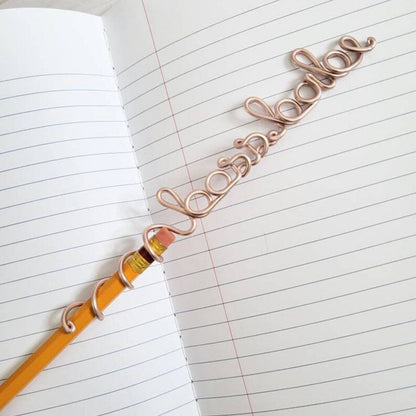 boss babe